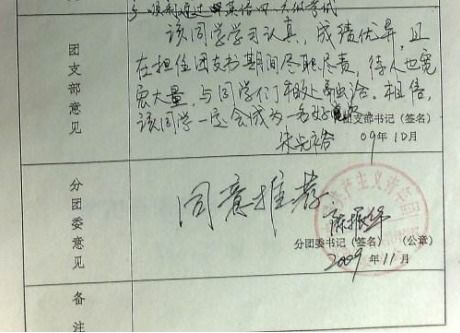 团支部意见
该同学学习认真，成绩优异，且
在担任团支书期间尽职尽责，待人也宽
宏大量，与同学们相处融洽。相信，
该同学一定会成为一名好党员
团支部书记（签名）
09年10月
分团委意见
同意推荐
分团委书记（签名） （公章）
2009年11月
备注